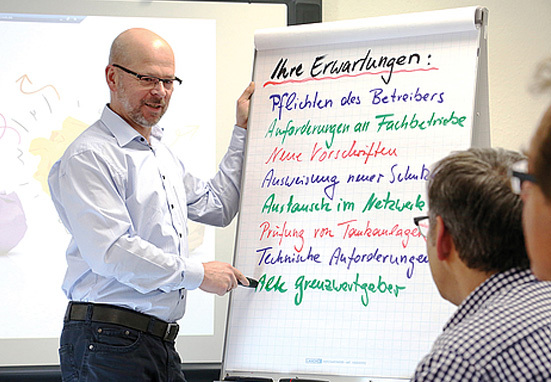 Ihre Erwartungen:
Pflichten des Betreibers
Anforderungen an Fachbetriebe
Neue Vorschriften
Ausweisung neuer Schutz
Austausch im Netzwerk
Prüfung von Tankanlagen
Technische Anforderungen
Alte Grenzwertgeber